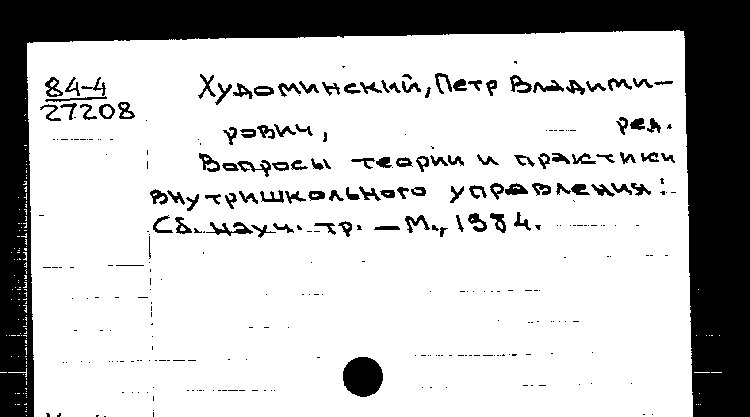 84-4
27208
Худоминский, Петр Владими-
рович, ред.
Вопросы теории и практики
внутришкольного управления:
Сб. науч. тр. — М., 1984.